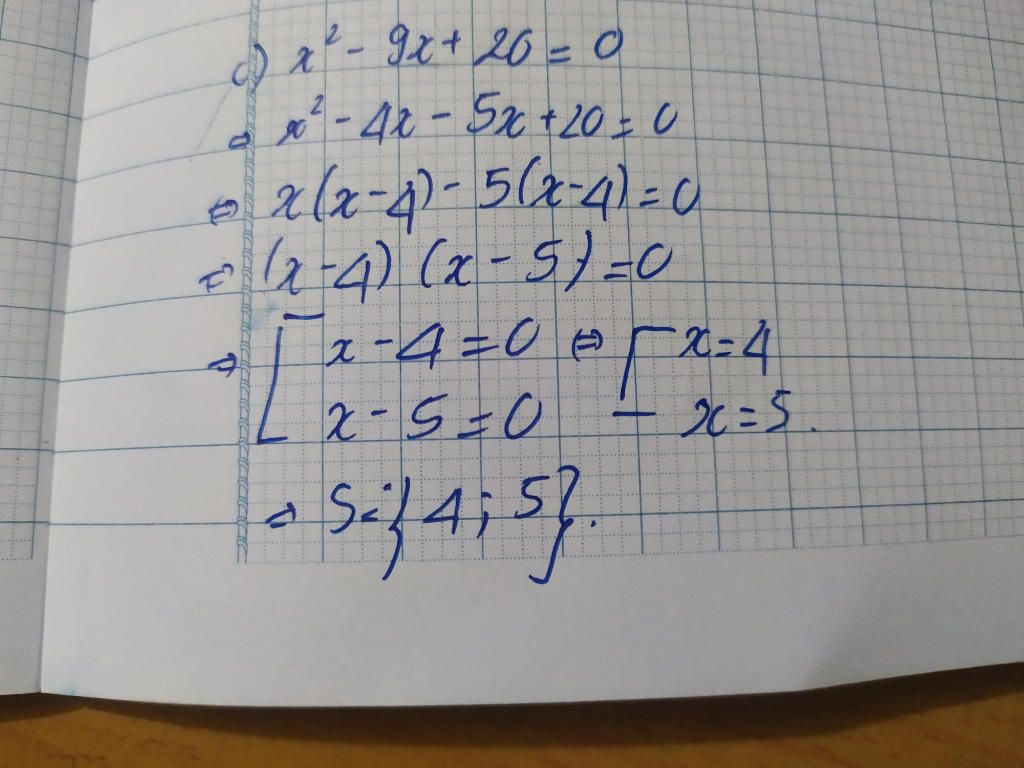 c) x² - 9x + 20 = 0
⇒ x² - 4x - 5x + 20 = 0
⇔ x(x-4) - 5(x-4) = 0
⇔ (x-4) (x-5) = 0
⇒ [ x - 4 = 0 ⇔ [ x = 4
x - 5 = 0 x = 5.
⇒ S = {4; 5}.